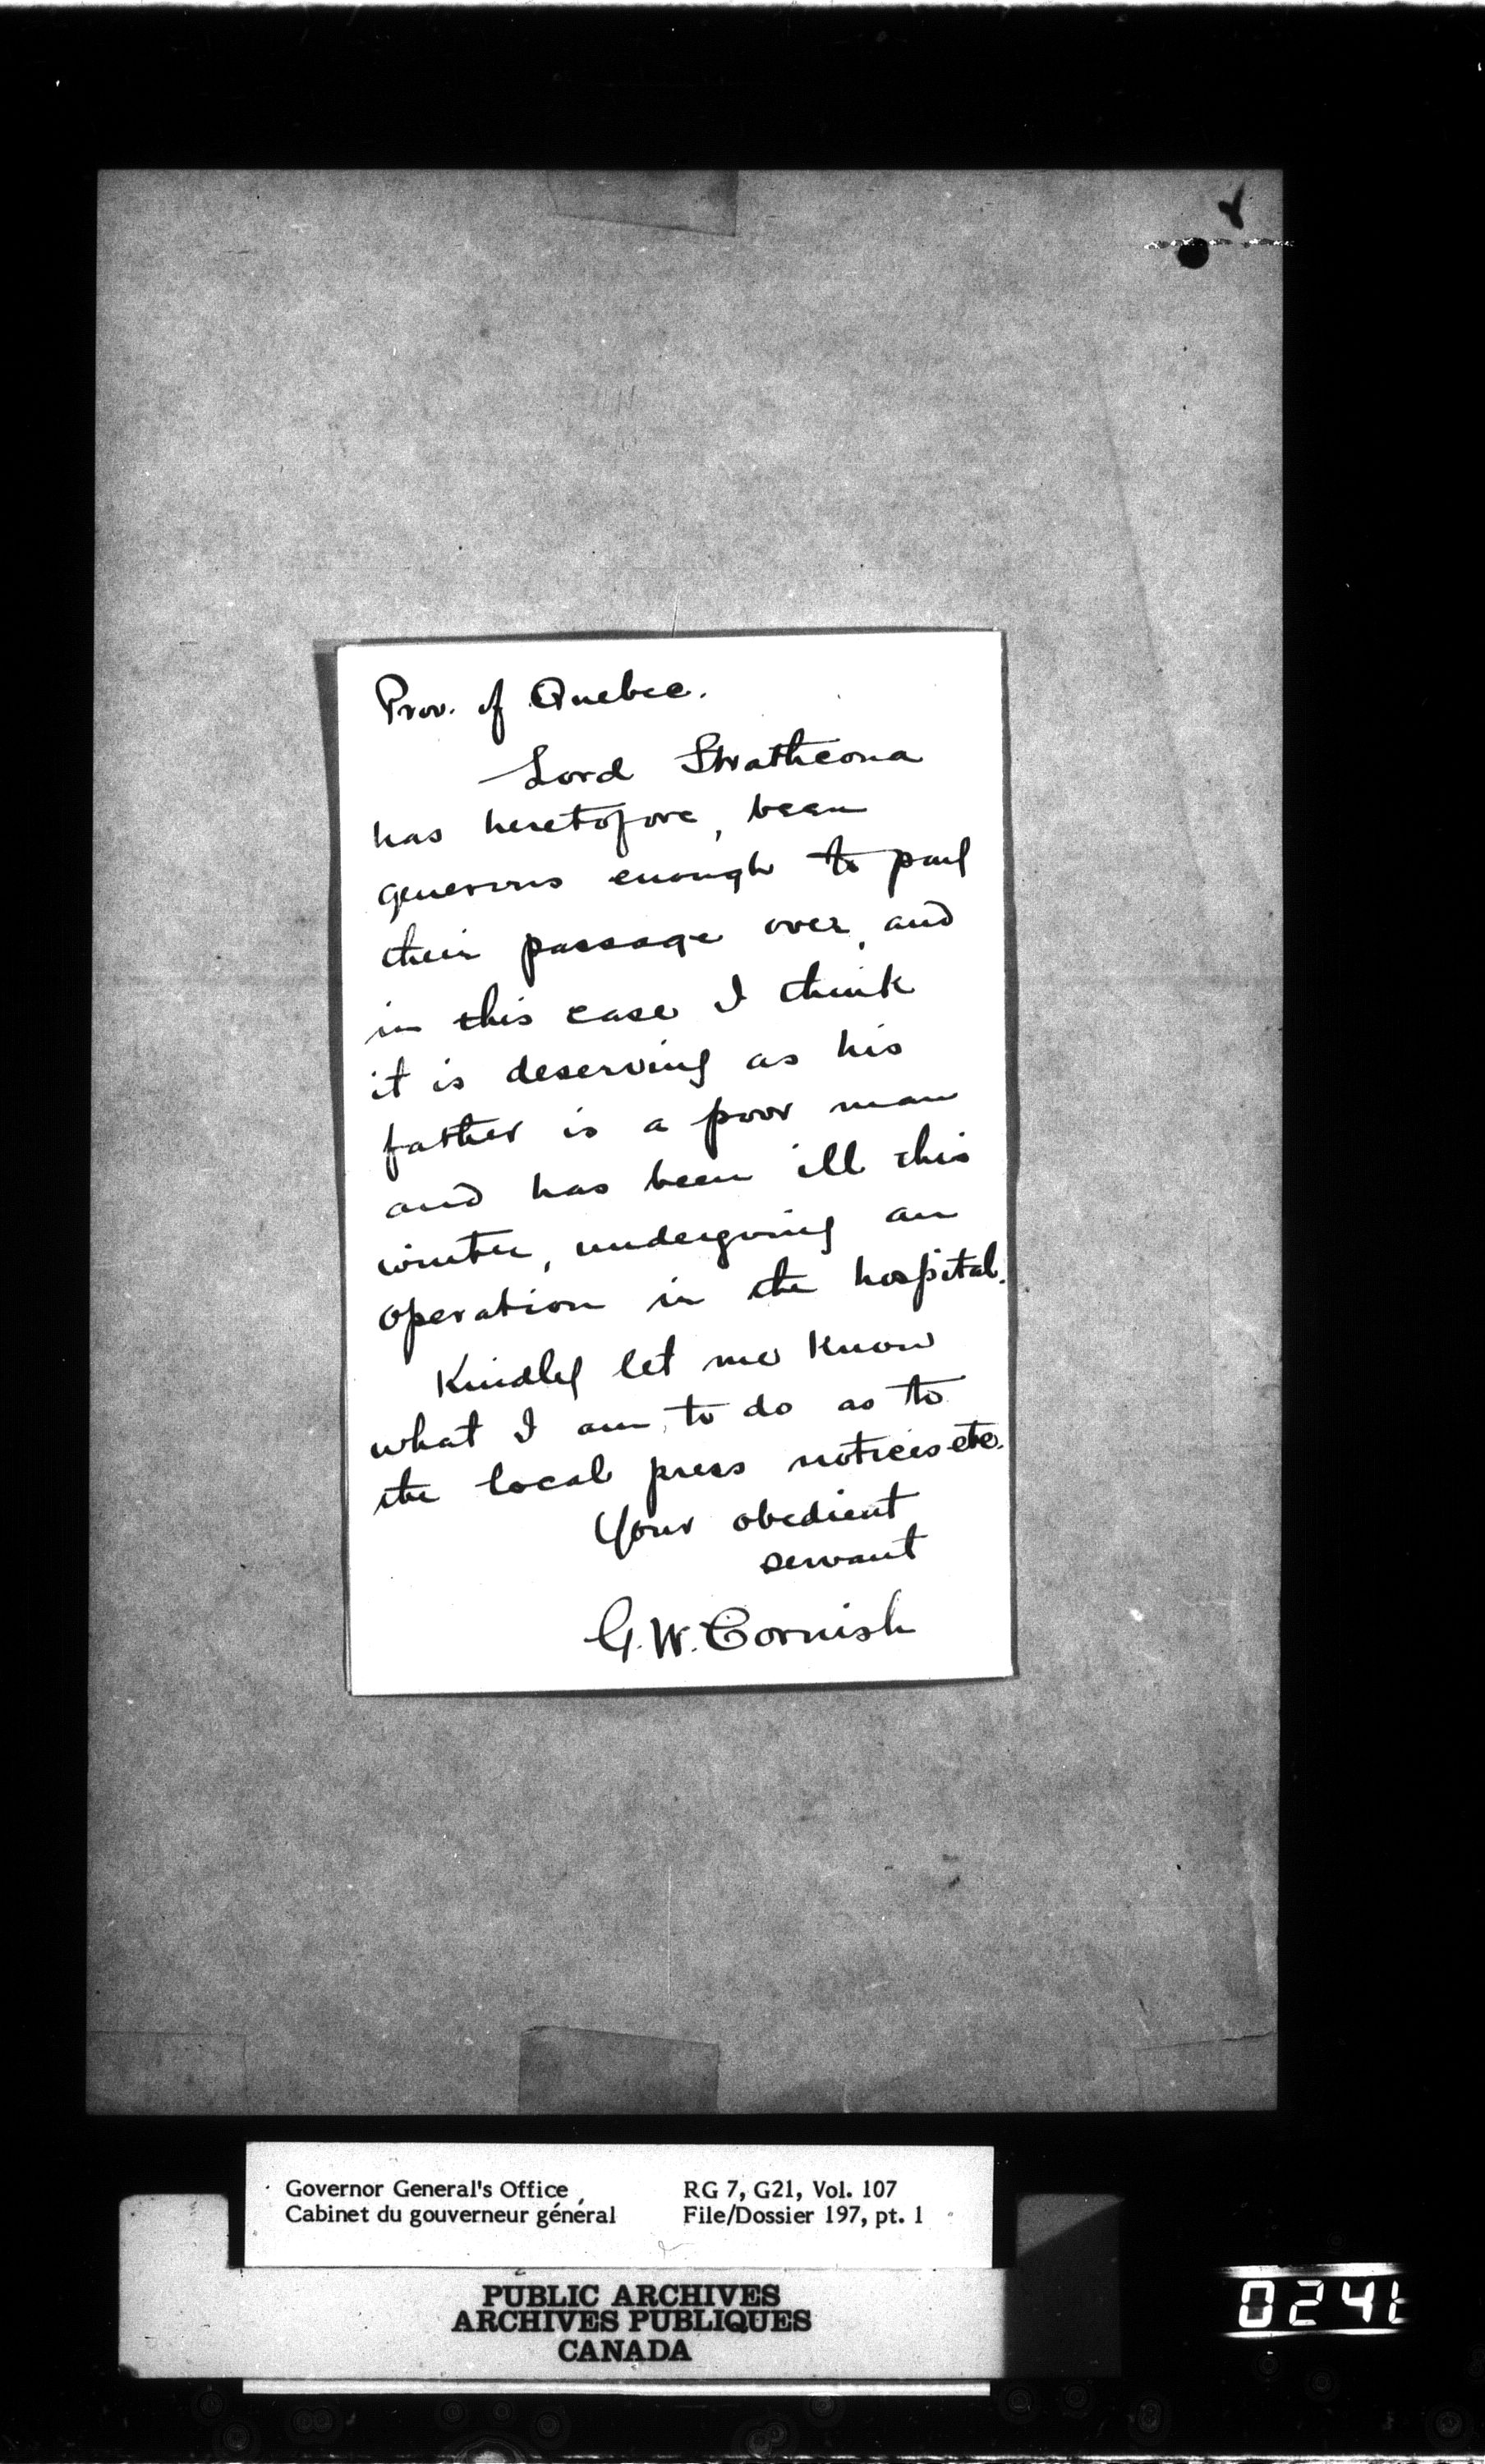 Prov. of Quebec.
Lord Strathcona
has heretofore, been
generous enough to pay
their passage over, and
in this case I think
it is deserving as his
father is a poor man
and has been ill this
winter, undergoing an
operation in the hospital.
Kindly let me know
what I am to do as to
the local press notices etc.
Your obedient
servant
G. W. Cornish
Governor General's Office RG 7, G21, Vol. 107
Cabinet du gouverneur général File/Dossier 197, pt. 1
PUBLIC ARCHIVES
ARCHIVES PUBLIQUES
CANADA